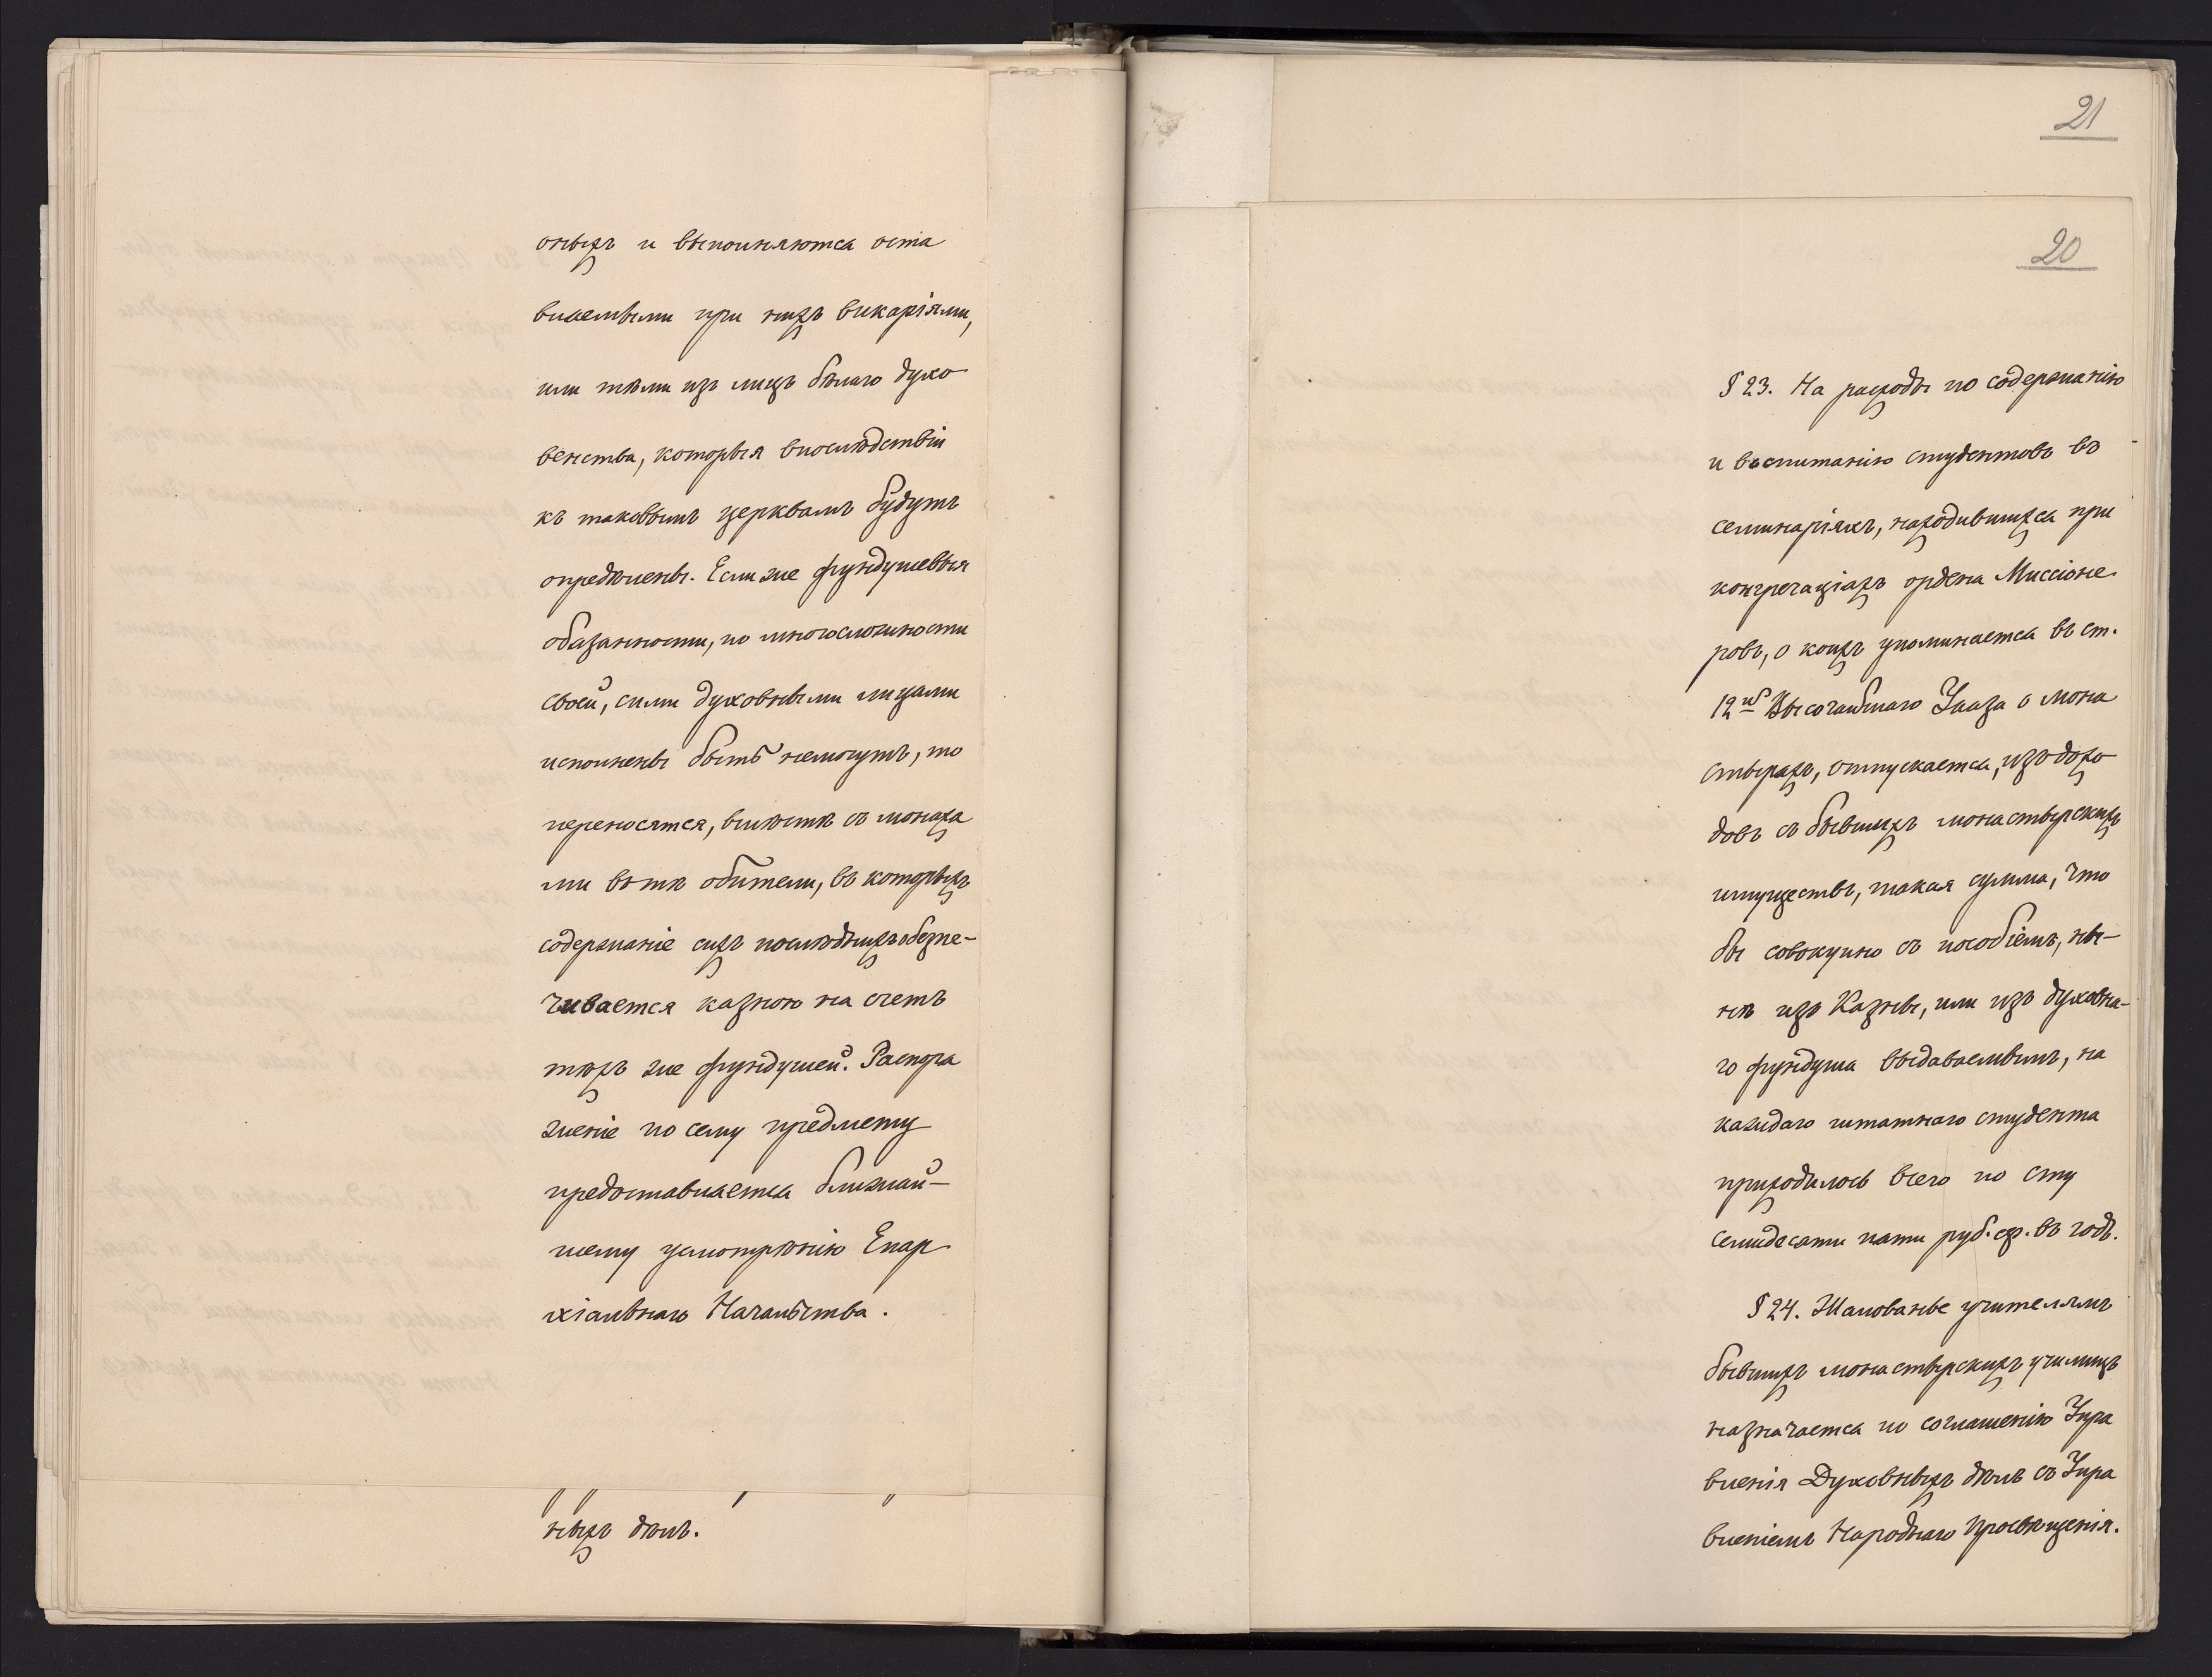 оныхъ и выполняются оста
вляемыми при нихъ викаріями,
или тѣми изъ лицъ бѣлаго духо
венства, которыя впослѣдствіи
къ таковымъ церквамъ будутъ
опредѣлены. Если же фундушевыя
обязанности, по многосложности
своей, сими духовными лицами
исполнены быть немогутъ, то
переносятся, вмѣстѣ съ монаха
ми вътѣ обители, въ которыхъ
содержаніе сихъ послѣднихъ обезпе-
чивается казною на счетъ
тѣхъ же фундушей. Распоря
женіе по сему предмету
предоставляется ближай-
шему усмотрѣнію Епар
хіальнаго Начальства.
ныхъ дѣлъ.
21
20
§ 23. На расходы по содержанію
и воспитанію студентовъ въ
семинаріяхъ, находившихся при
конгрегаціяхъ ордена Миссіоне
ровъ, о коихъ упоминается въ ст.
12й Высочайшаго Указа о мона
стыряхъ, отпускается, изъ дохо
довъ съ бывшихъ монастырскихъ
имуществъ, такая сумма, что
бы совокупно съ пособіемъ, ны-
нѣ изъ Казны, или изъ духовна-
го фундуша выдаваемымъ, на
каждаго штатнаго студента
приходилось всего по сту
семидесяти пяти руб. ср. въ годъ.
§ 24. Жалованье учителямъ
бывшихъ монастырскихъ училищъ
назначается по соглашенію Упра
вленія Духовныхъ дѣлъ съ Упра
вленіемъ Народнаго Просвѣщенія.